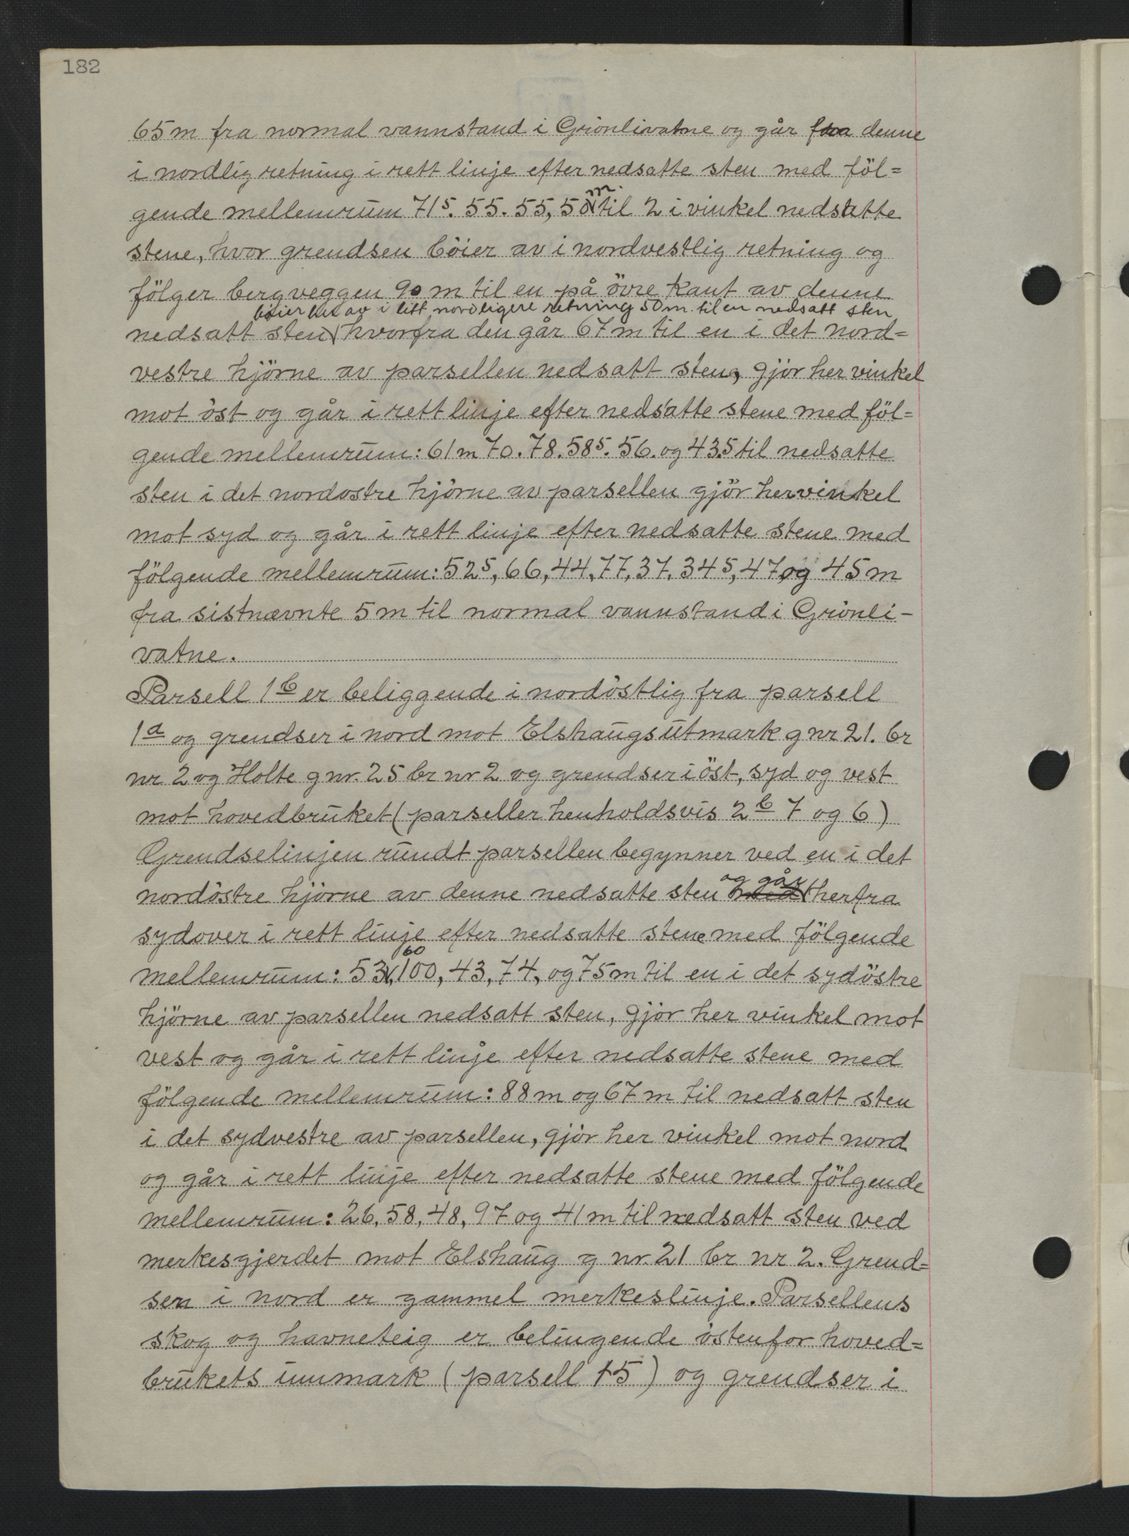 182
65 m fra normal vannstand i Grönlivatne og går fra denne
i nordlig retning i rett linje efter nedsatte sten med föl=
gende mellemrum 71⁵. 55. 55, 50 m til 2 i vinkel nedsatte
stene, hvor grendsen böier av i nordvestlig retning og
fölger bergveggen 90 m til en på övre kant av denne
böier litt av i litt nordligere retning 50 m. til en nedsatt sten
nedsatt sten hvorfra den går 67 m til en i det nord=
vestre hjörne av parsellen nedsatt sten, gjör her vinkel
mot öst og går i rett linje efter nedsatte stene med föl=
gende mellemrum: 61 m 70. 78. 58⁵. 56. og 43.5 til nedsatte
sten i det nordostre hjörne av parsellen gjör her vinkel
mot syd og går i rett linje efter nedsatte stene med
fölgende mellemrum: 52⁵, 66, 44, 77, 37, 34⁵, 47 og 45 m
fra sistnævnte 5 m til normal vannstand i Grönli-
vatne.
Parsell 1 b er beliggende i nordöstlig fra parsell
1 a og grendser i nord mot Elshaugs utmark g nr 21. br
nr 2 og Holte g nr. 25 br nr 2 og grendser i öst, syd og vest
mot hovedbruket (parseller henholdsvis 2 b 7 og 6)
Grendselinjen rundt parsellen begynner ved en i det
og går
nordöstre hjörne av denne nedsatte sten herfra
sydover i rett linje efter nedsatte stene med fölgende
60
mellemrum: 53, 100, 43, 74, og 75 m til en i det sydöstre
hjörne av parsellen nedsatt sten, gjör her vinkel mot
vest og går i rett linje efter nedsatte stene med
fölgende mellemrum: 88 m og 67 m til nedsatt sten
i det sydvestre av parsellen, gjör her vinkel mot nord
og går i rett linje efter nedsatte stene med fölgende
mellemrum: 26, 58, 48, 97 og 41 m til nedsatt sten ved
merkesgjerdet mot Elshaug g nr 21 br nr 2. Grend=
sen i nord er gammel merkeslinje. Parsellens
skog og havneteig er belingende östenfor hoved=
brukets innmark (parsell 15) og grendser i